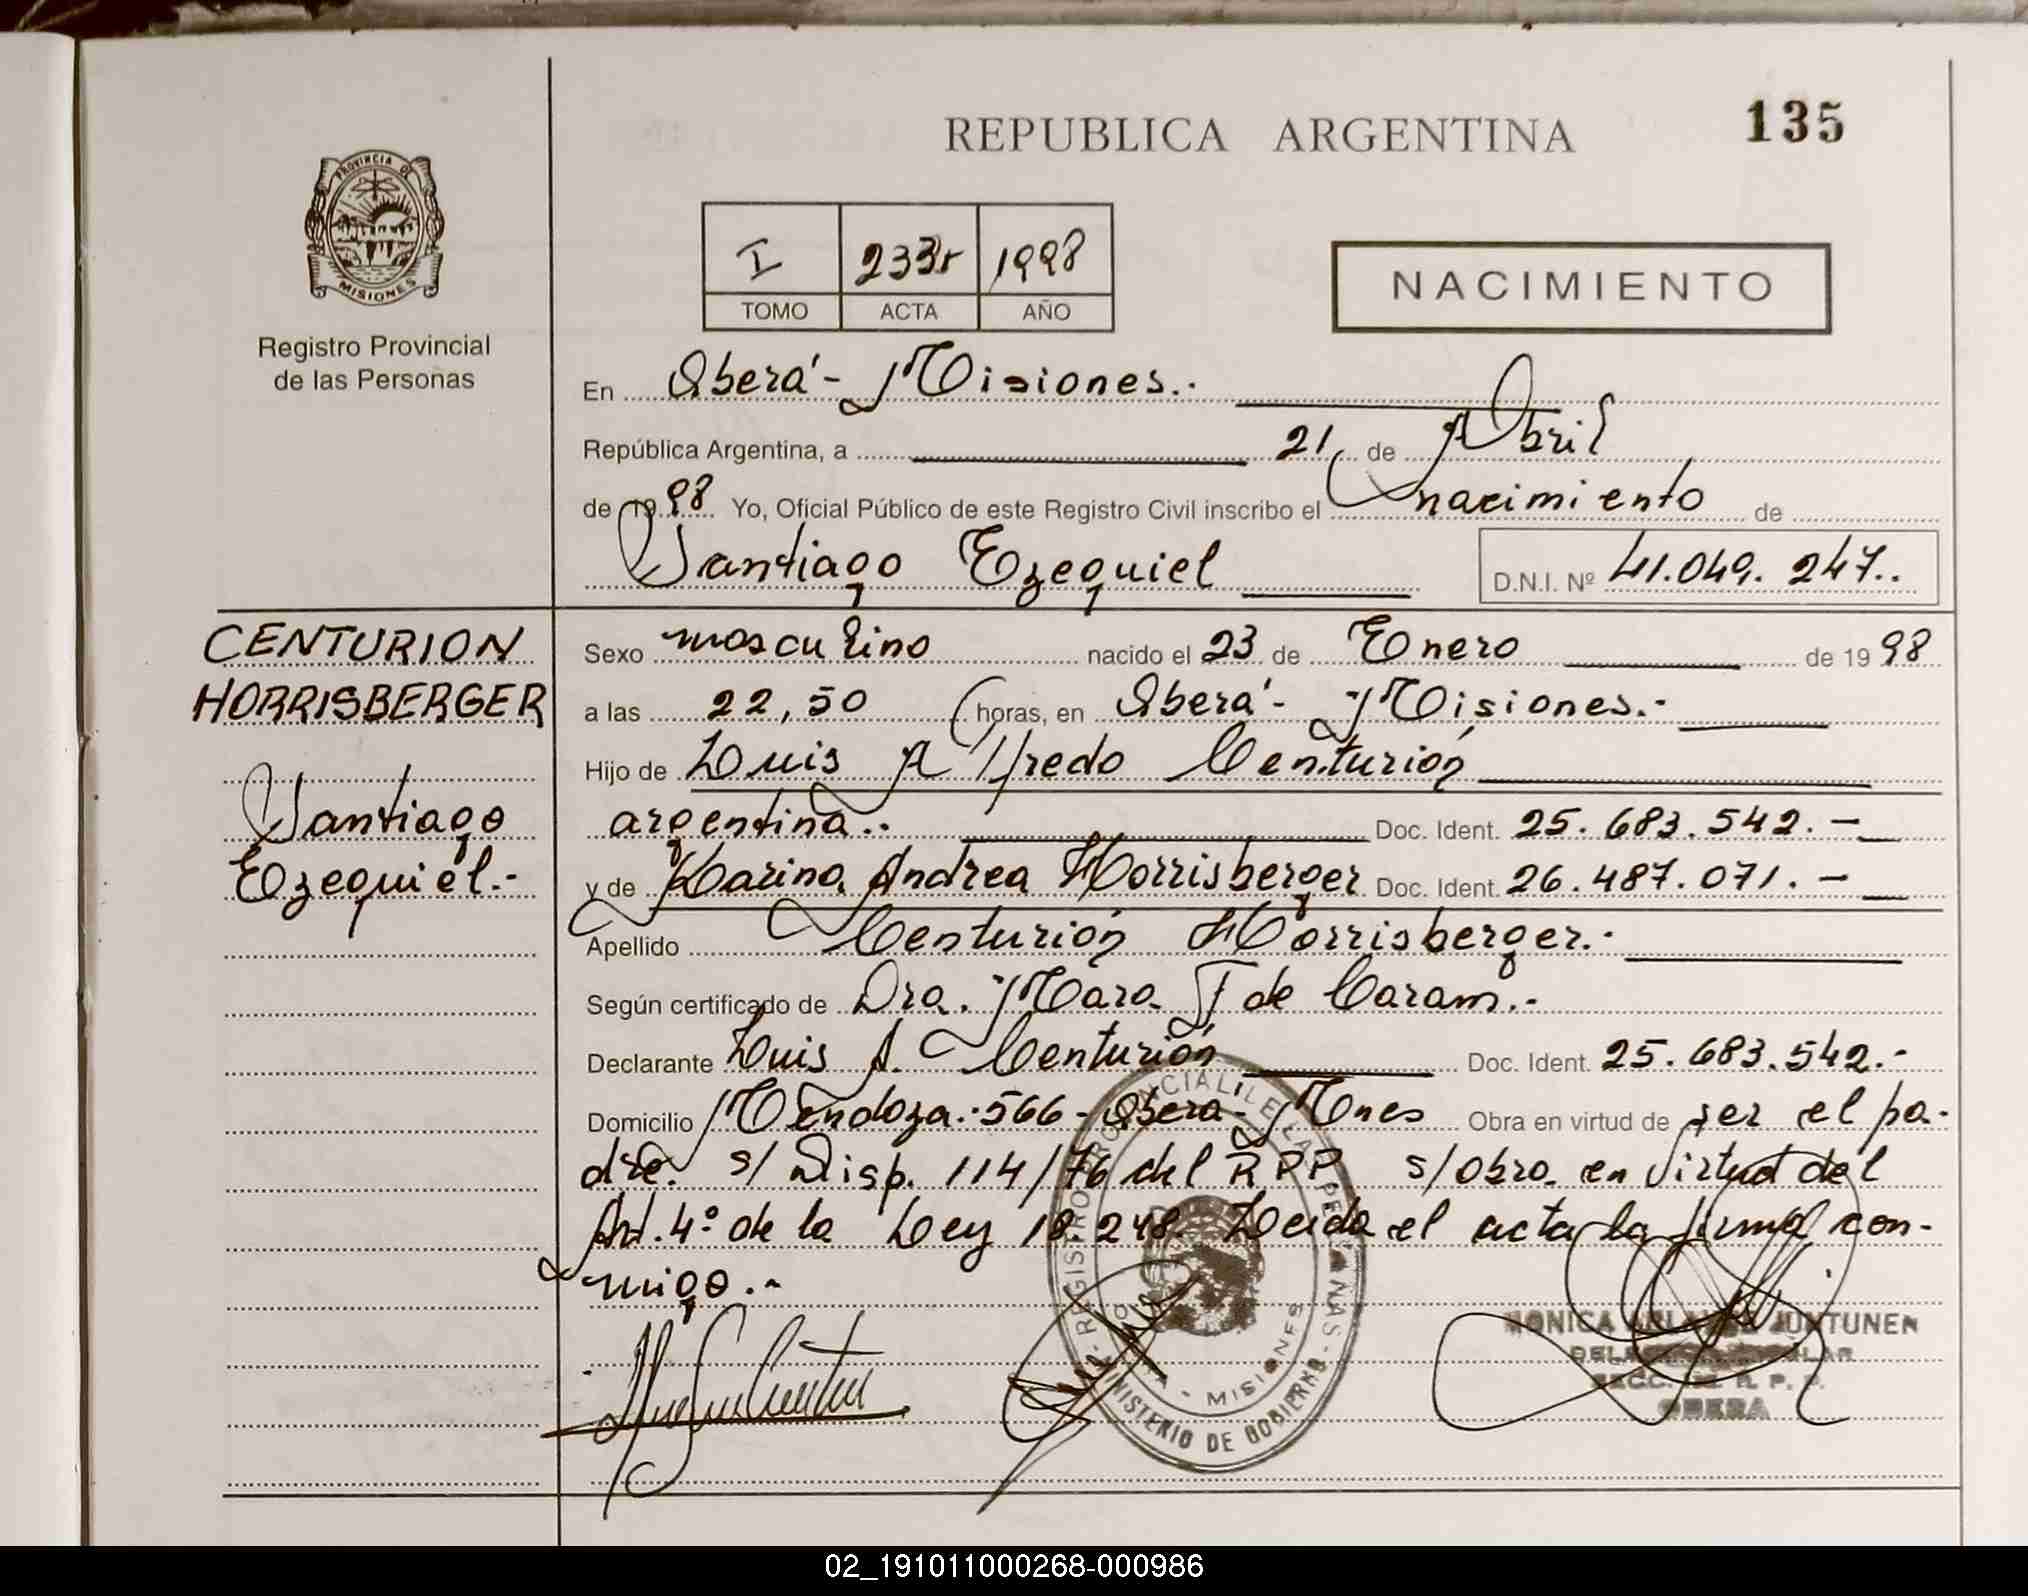 REPUBLICA ARGENTINA
135
PROVINCIA DE
MISIONES
Registro Provincial
de las Personas
I 1998
TOMO ACTA AÑO
NACIMIENTO
En Oberá - Misiones.-
República Argentina, a 21 de Abril
de 1998 Yo, Oficial Público de este Registro Civil inscribo el nacimiento de
Santiago Ezequiel D.N.I. Nº 41.049.247..
CENTURION
HORRISBERGER
Santiago
Ezequiel.-
Sexo masculino nacido el 23 de Enero de 1998
a las 22,50 horas, en Oberá - Misiones.-
Hijo de Luis Alfredo Centurión
argentina.- Doc. Ident. 25.683.542.-
y de Karina Andrea Horrisberger Doc. Ident. 26.487.071.-
Apellido Centurión Horrisberger.-
Según certificado de Dra. Mara F de Caram.-
Declarante Luis A. Centurión Doc. Ident. 25.683.542.-
Domicilio Mendoza.-566-Oberá-Mnes Obra en virtud de ser el pa-
dre. s/ Disp. 114/76 del RPP. s/obra en virtud del
Art. 4º de la Ley 18.248. Leida el acta la firma con-
migo.-
REGISTRO PROVINCIAL DE LAS PERSONAS
MISIONES
MINISTERIO DE GOBIERNO
MONICA JUNTUNEN
R. P. P.
OBERA
02_191011000268-000986